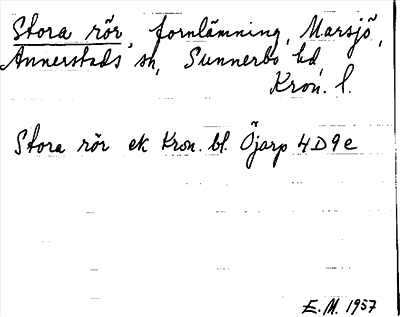 Stora rör, fornlämning, Marsjö,
Annerstads sn, Sunnerbo hd,
Kron. l.
Stora rör ek Kron. bl. Öjarp 4D9e
E.M. 1957